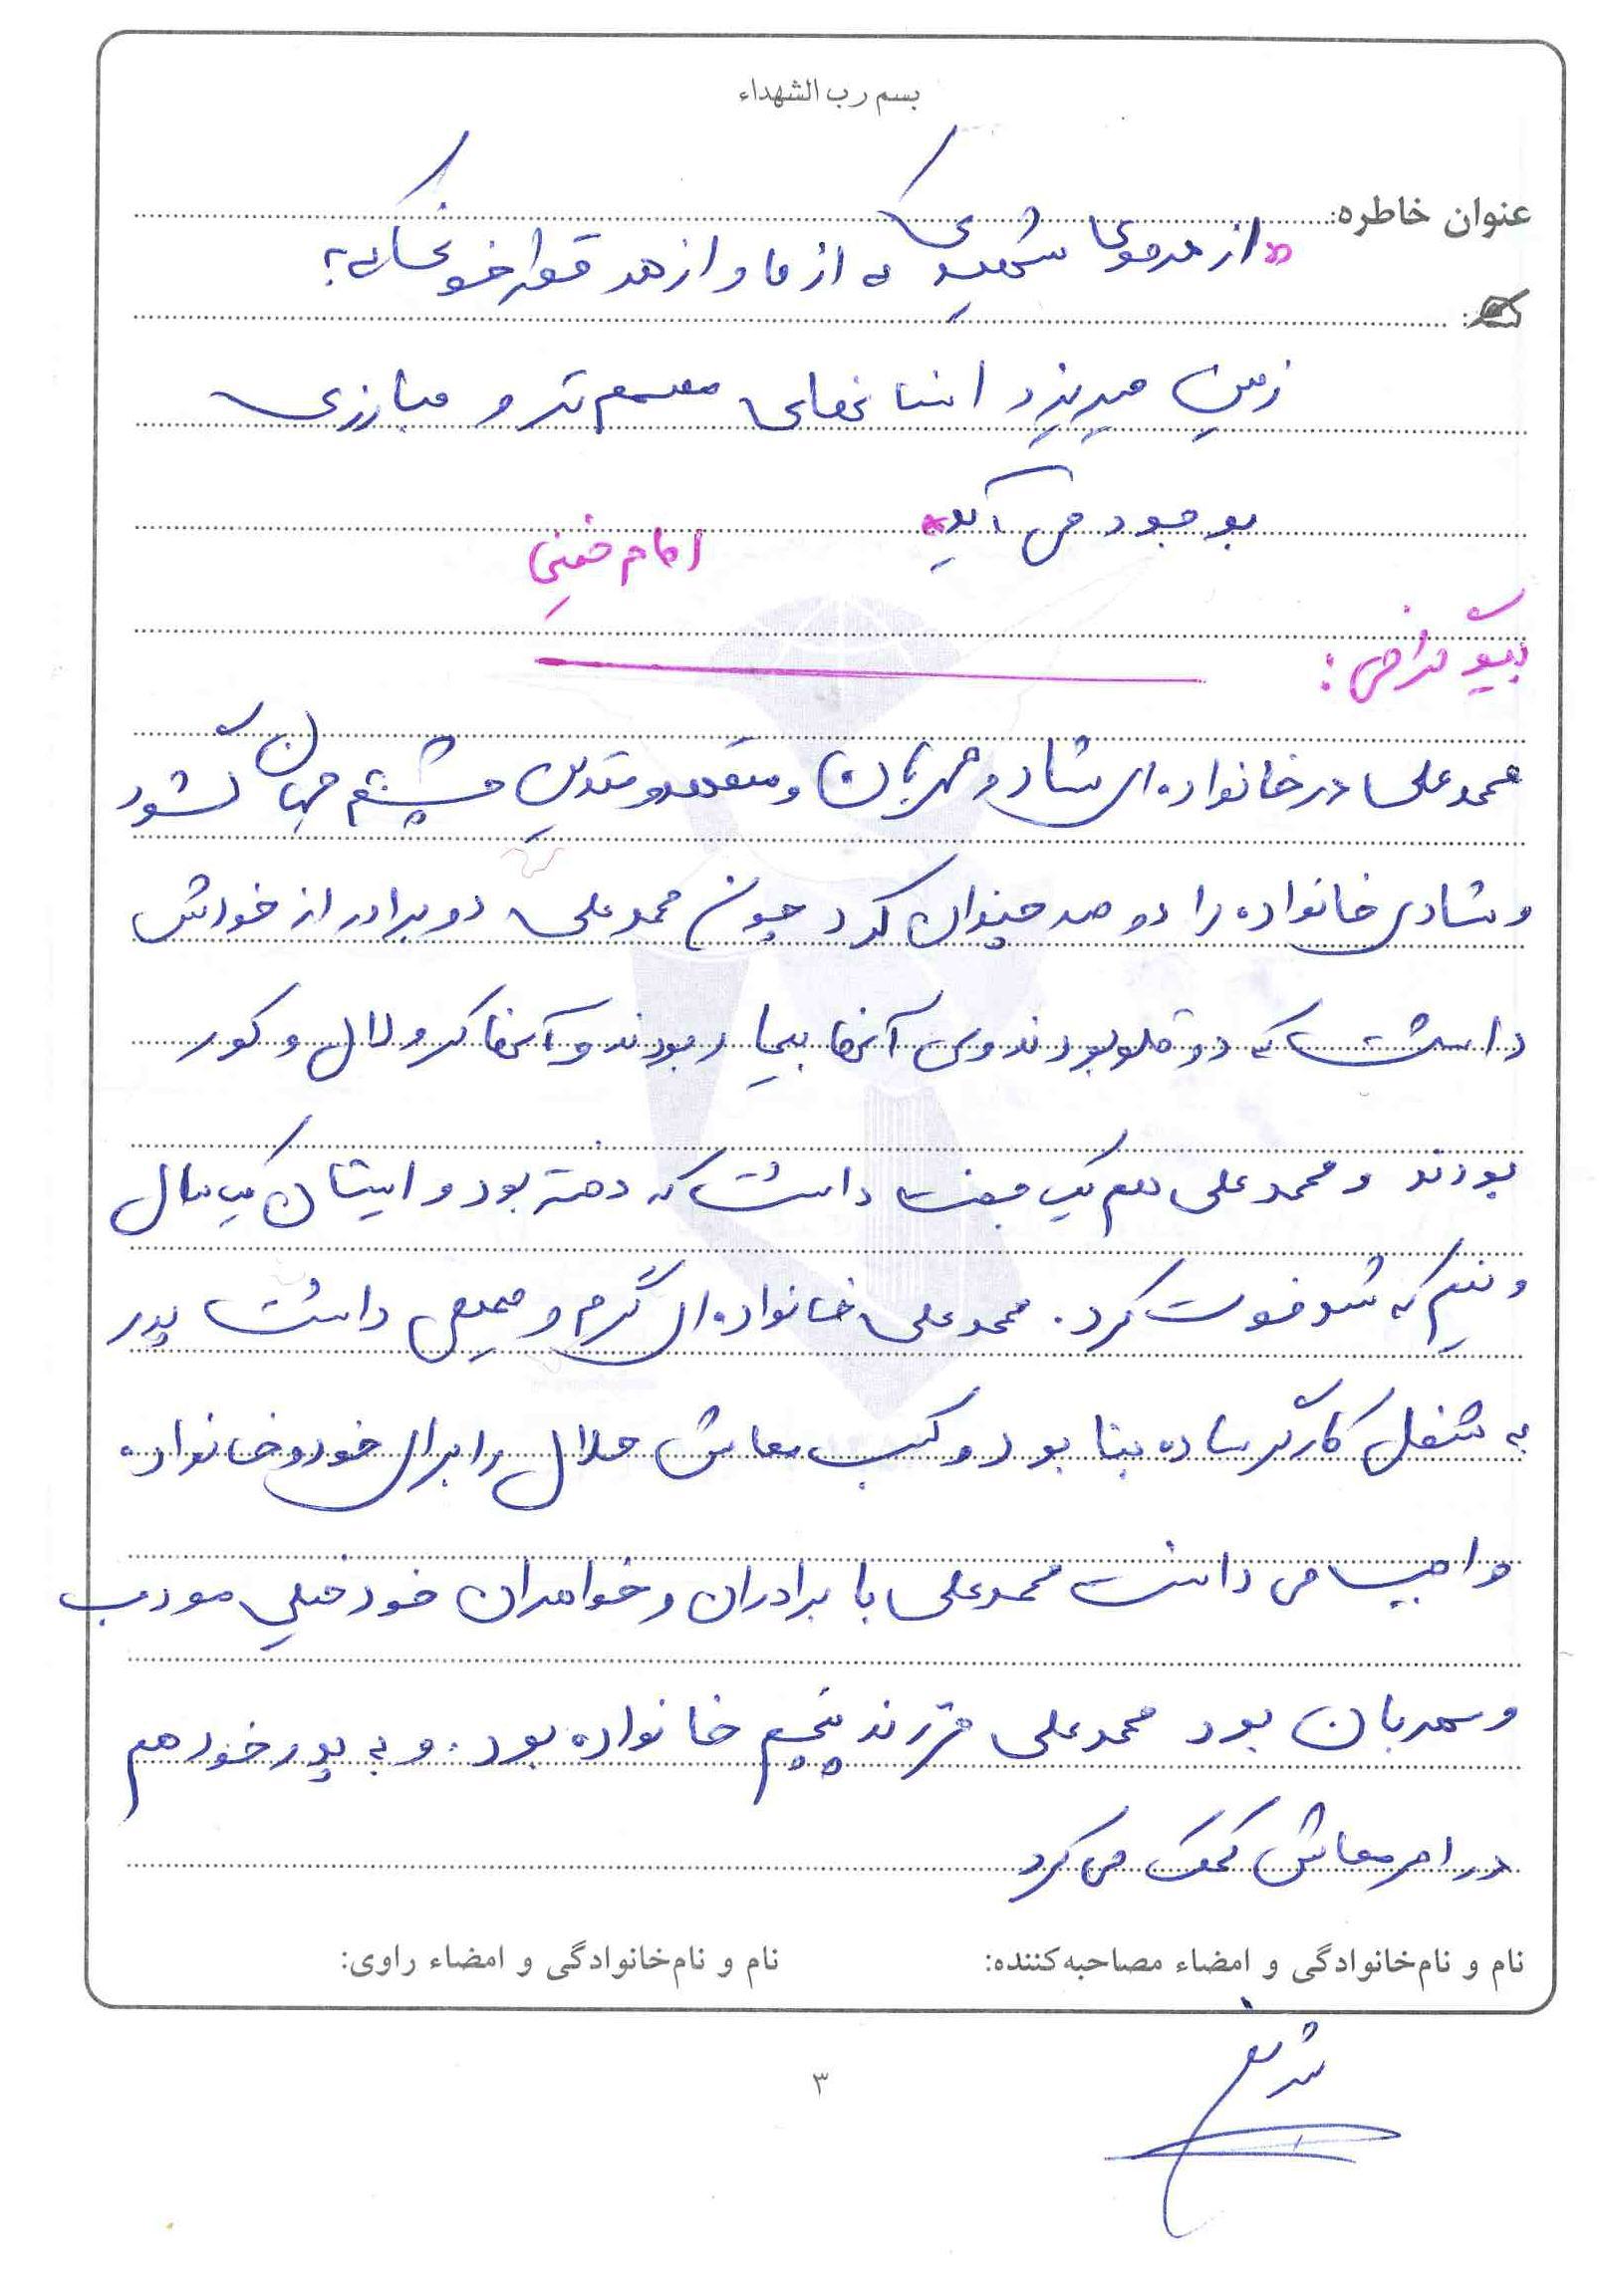 بسم رب الشهداء
عنوان خاطره:
«از هر موی شهیدی که از ما و از هر قطره خونی که به
زمین میریزد انسانهای مصمم تر و مبارزی
بوجود می آید»
امام خمینی
بیوگرافی:
محمدعلی در خانواده ای شاد و مهربان و متعهد و متدین چشم به جهان گشود
و شادی خانواده را دو صد چندان کرد چون محمدعلی دو برادر از خودش
داشت که دو قلو بودند ولی آنها بیمار بودند و آنها کر و لال و کور
بودند و محمدعلی هم یک جفت داشت که دختر بود و ایشان یک سال
و نیم که شد فوت کرد. محمدعلی خانواده ای گرم و صمیمی داشت پدر
به شغل کارگر ساده بنا بود و کسب معاش حلال را برای خود و خانواده
واجب می دانست محمدعلی با برادران و خواهران خود خیلی مودب
و مهربان بود محمدعلی فرزند پنجم خانواده بود. و به پدر خود هم
در امر معاش کمک می کرد
نام و نام‌خانوادگی و امضاء مصاحبه‌کننده: نام و نام‌خانوادگی و امضاء راوی:
۳